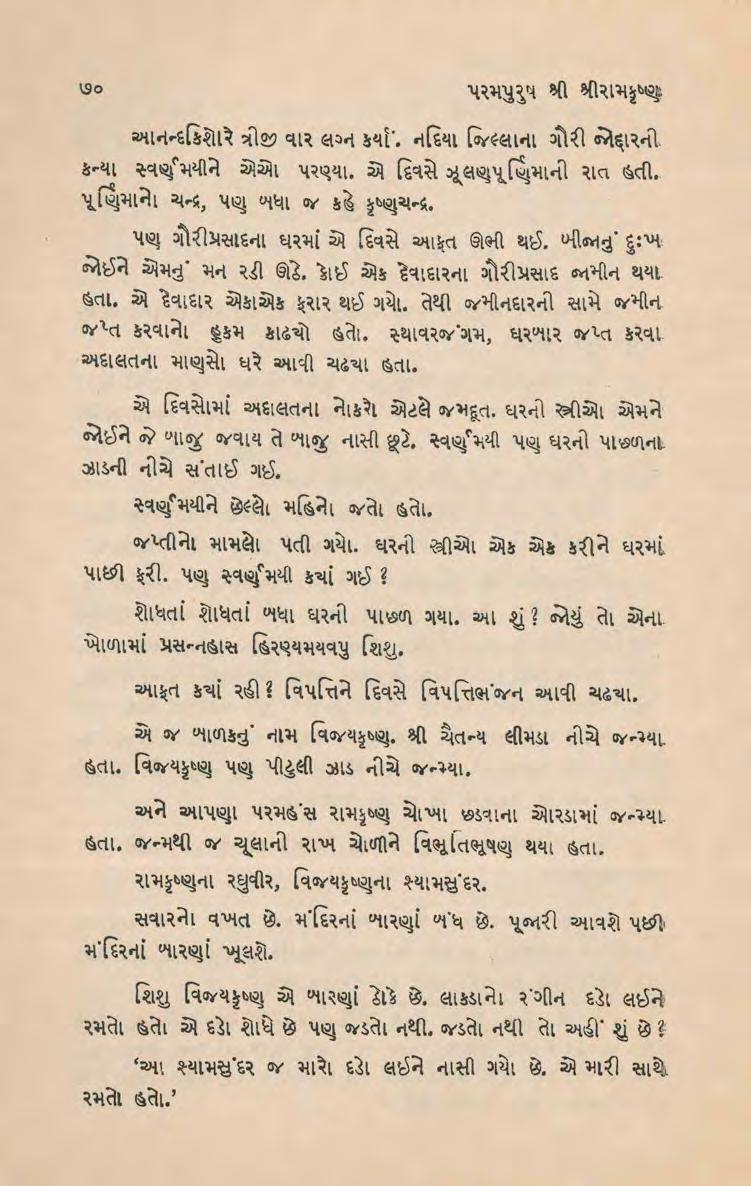 ૭૦ પરમપુરુષ શ્રી શ્રીરામકૃષ્ણ
આનન્દકિશોરે ત્રીજી વાર લગ્ન કર્યાં. નદિયા જિલ્લાના ગૌરી જોદ્દારની
કન્યા સ્વર્ણમયીને એઓ પરણ્યા. એ દિવસે ઝૂલણપૂર્ણિમાની રાત હતી.
પૂર્ણિમાનો ચન્દ્ર, પણ બધા જ કહે કૃષ્ણચન્દ્ર.
પણ ગૌરીપ્રસાદના ઘરમાં એ દિવસે આફત ઊભી થઈ. બીજાનું દુઃખ
જોઈને એમનું મન રડી ઊઠે. કોઈ એક દેવાદારના ગૌરીપ્રસાદ જામીન થયા
હતા. એ દેવાદાર એકાએક ફરાર થઈ ગયો. તેથી જમીનદારની સામે જમીન
જપ્ત કરવાનો હૂકમ કાઢયો હતો. સ્થાવરજંગમ, ઘરબાર જપ્ત કરવા
અદાલતના માણસો ઘરે આવી ચઢયા હતા.
એ દિવસોમાં અદાલતના નોકરો એટલે જમદૂત. ઘરની સ્ત્રીઓ એમને
જોઈને જે બાજુ જવાય તે બાજુ નાસી છૂટે. સ્વર્ણમયી પણ ઘરની પાછળના
ઝાડની નીચે સંતાઈ ગઈ.
સ્વર્ણમયીને છેલ્લો મહિનો જતો હતો.
જપ્તીનો મામલો પતી ગયો. ઘરની સ્ત્રીઓ એક એક કરીને ઘરમાં
પાછી ફરી. પણ સ્વર્ણમયી કયાં ગઈ ?
શોધતાં શોધતાં બધા ઘરની પાછળ ગયા. આ શું ? જોયું તો એના
ખોળામાં પ્રસન્નહાસ હિરણ્યમયવપુ શિશુ.
આફત કયાં રહી ? વિપત્તિને દિવસે વિપત્તિભંજન આવી ચઢયા.
એ જ બાળકનું નામ વિજયકૃષ્ણ. શ્રી ચૈતન્ય લીમડા નીચે જન્મ્યા
હતા. વિજયકૃષ્ણ પણ પીટુલી ઝાડ નીચે જન્મ્યા.
અને આપણા પરમહંસ રામકૃષ્ણ ચોખા છડવાના ઓરડામાં જન્મ્યા
હતા. જન્મથી જ ચૂલાની રાખ ચોળીને વિભૂતિભૂષણ થયા હતા.
રામકૃષ્ણના રઘુવીર, વિજયકૃષ્ણના શ્યામસુંદર.
સવારનો વખત છે. મંદિરનાં બારણાં બંધ છે. પૂજારી આવશે પછી
મંદિરનાં બારણાં ખૂલશે.
શિશુ વિજયકૃષ્ણ એ બારણાં ઠોકે છે. લાકડાનો રંગીન દડો લઈને
રમતો હતો એ દડો શોધે છે પણ જડતો નથી. જડતો નથી તો અહીં શું છે ?
‘આ શ્યામસુંદર જ મારો દડો લઈને નાસી ગયો છે. એ મારી સાથે
રમતો હતો.’